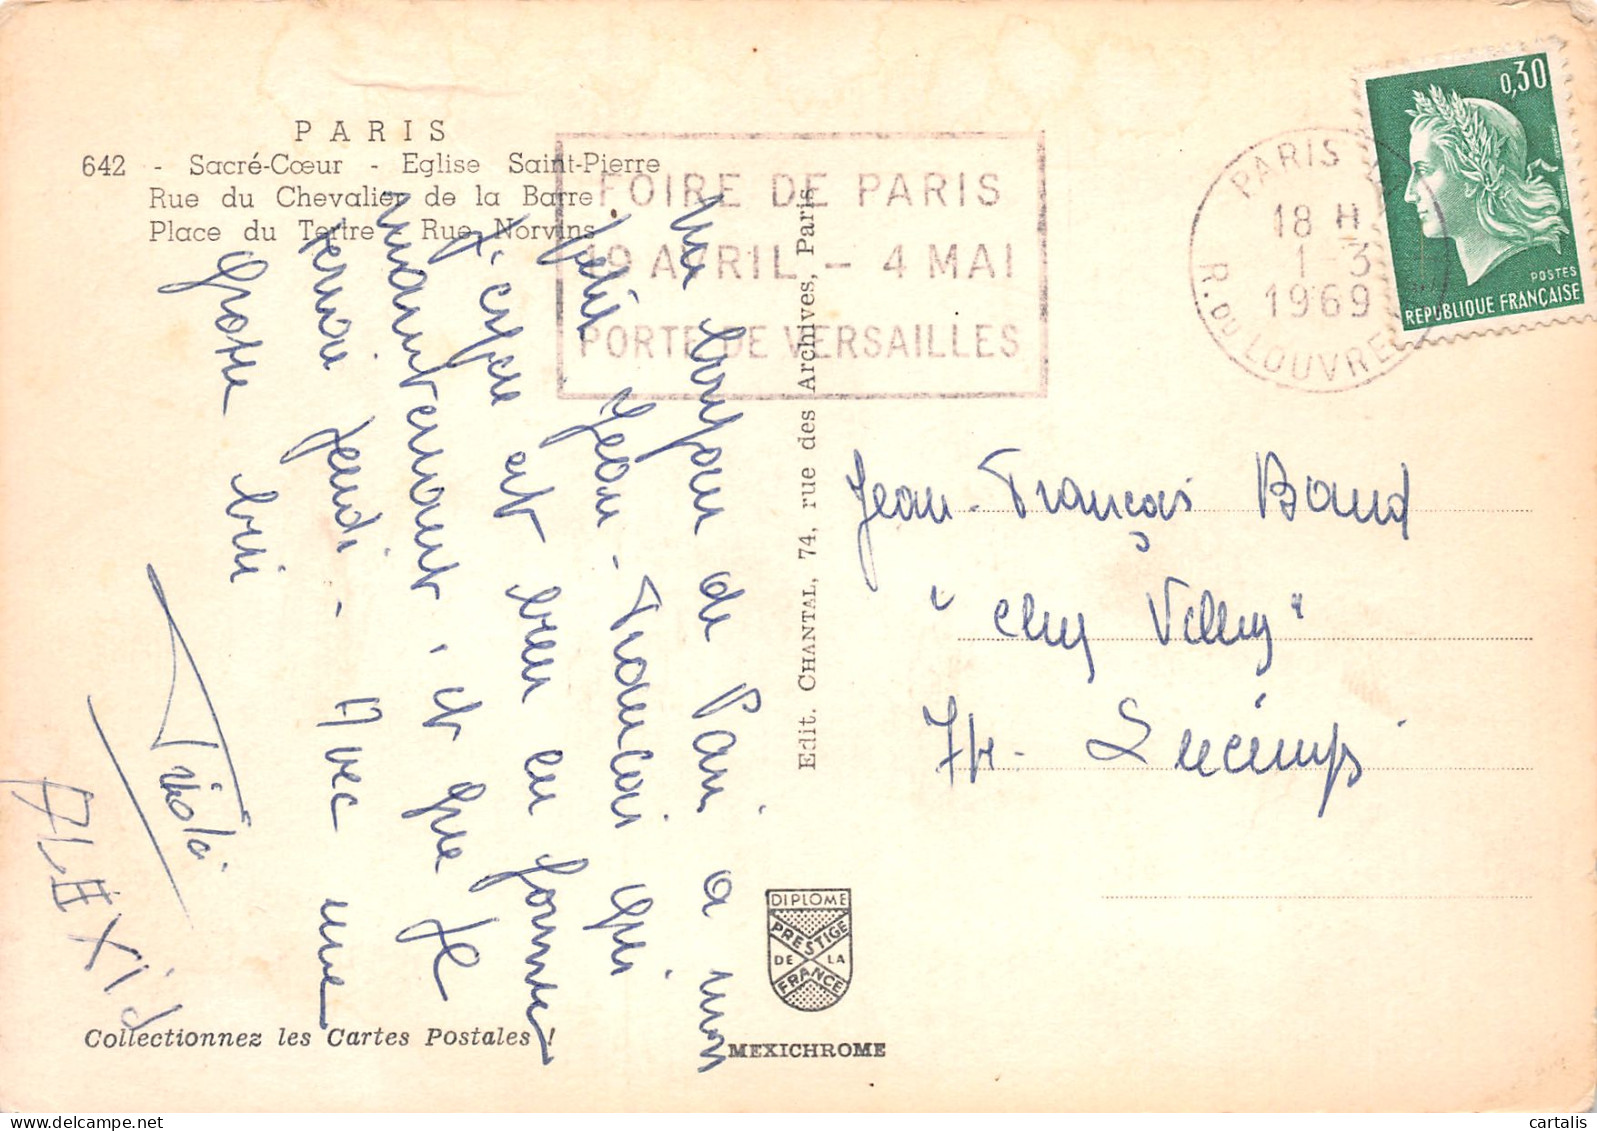 PARIS
642 - Sacré-Cœur - Eglise Saint-Pierre
Rue du Chevalier de la Barre
Place du Tertre - Rue Norvins
FOIRE DE PARIS
19 AVRIL - 4 MAI
PORTE DE VERSAILLES
PARIS
18 H
1-3
1969
R. DU LOUVRE
0,30
POSTES
REPUBLIQUE FRANÇAISE
Un bonjour de Paris a mon
petit Jean-François qui
j'espère est bien en forme
maintenant, et que je
verrai jeudi. Avec une
Grosse bise
ALEXiS
Edit. CHANTAL, 74, rue des Archives, Paris
Jean-François Baud
"chez
Collectionnez les Cartes Postales !
DIPLOME
PRESTIGE
DE LA
FRANCE
MEXICHROME
cartalis